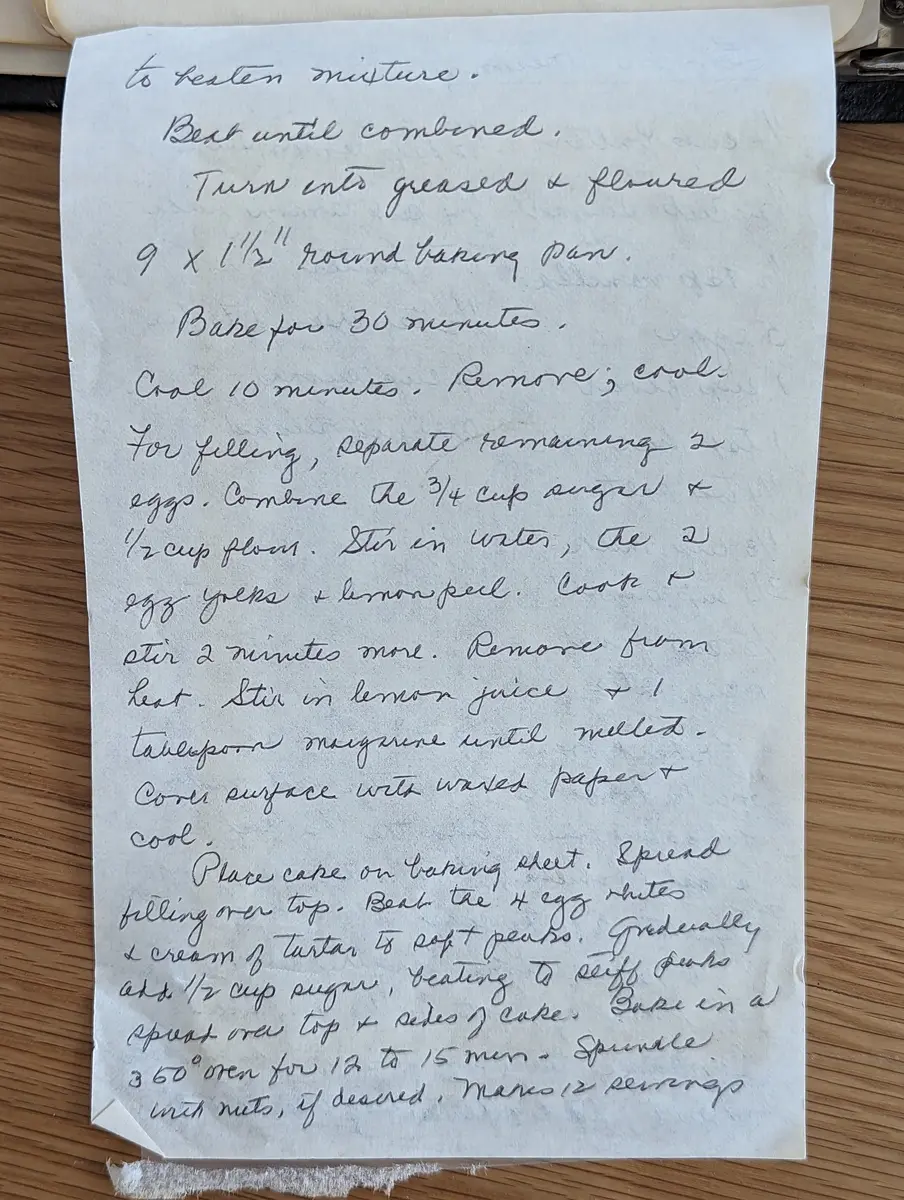 to beaten mixture.
Beat until combined.
Turn into greased & floured
9 x 1 1/2" round baking pan.
Bake for 30 minutes.
Cool 10 minutes. Remove; cool.
For filling, separate remaining 2
eggs. Combine the 3/4 cup sugar &
1/2 cup flour. Stir in water, the 2
egg yolks & lemon peel. Cook &
stir 2 minutes more. Remove from
heat. Stir in lemon juice & 1
tablespoon margarine until melted.
Cover surface with waxed paper &
cool.
Place cake on baking sheet. Spread
filling over top. Beat the 4 egg whites
& cream of tartar to soft peaks. Gradually
add 1/2 cup sugar, beating to stiff peaks
spread over top & sides of cake. Bake in a
350° oven for 12 to 15 min. Sprinkle
with nuts, if desired. Makes 12 servings